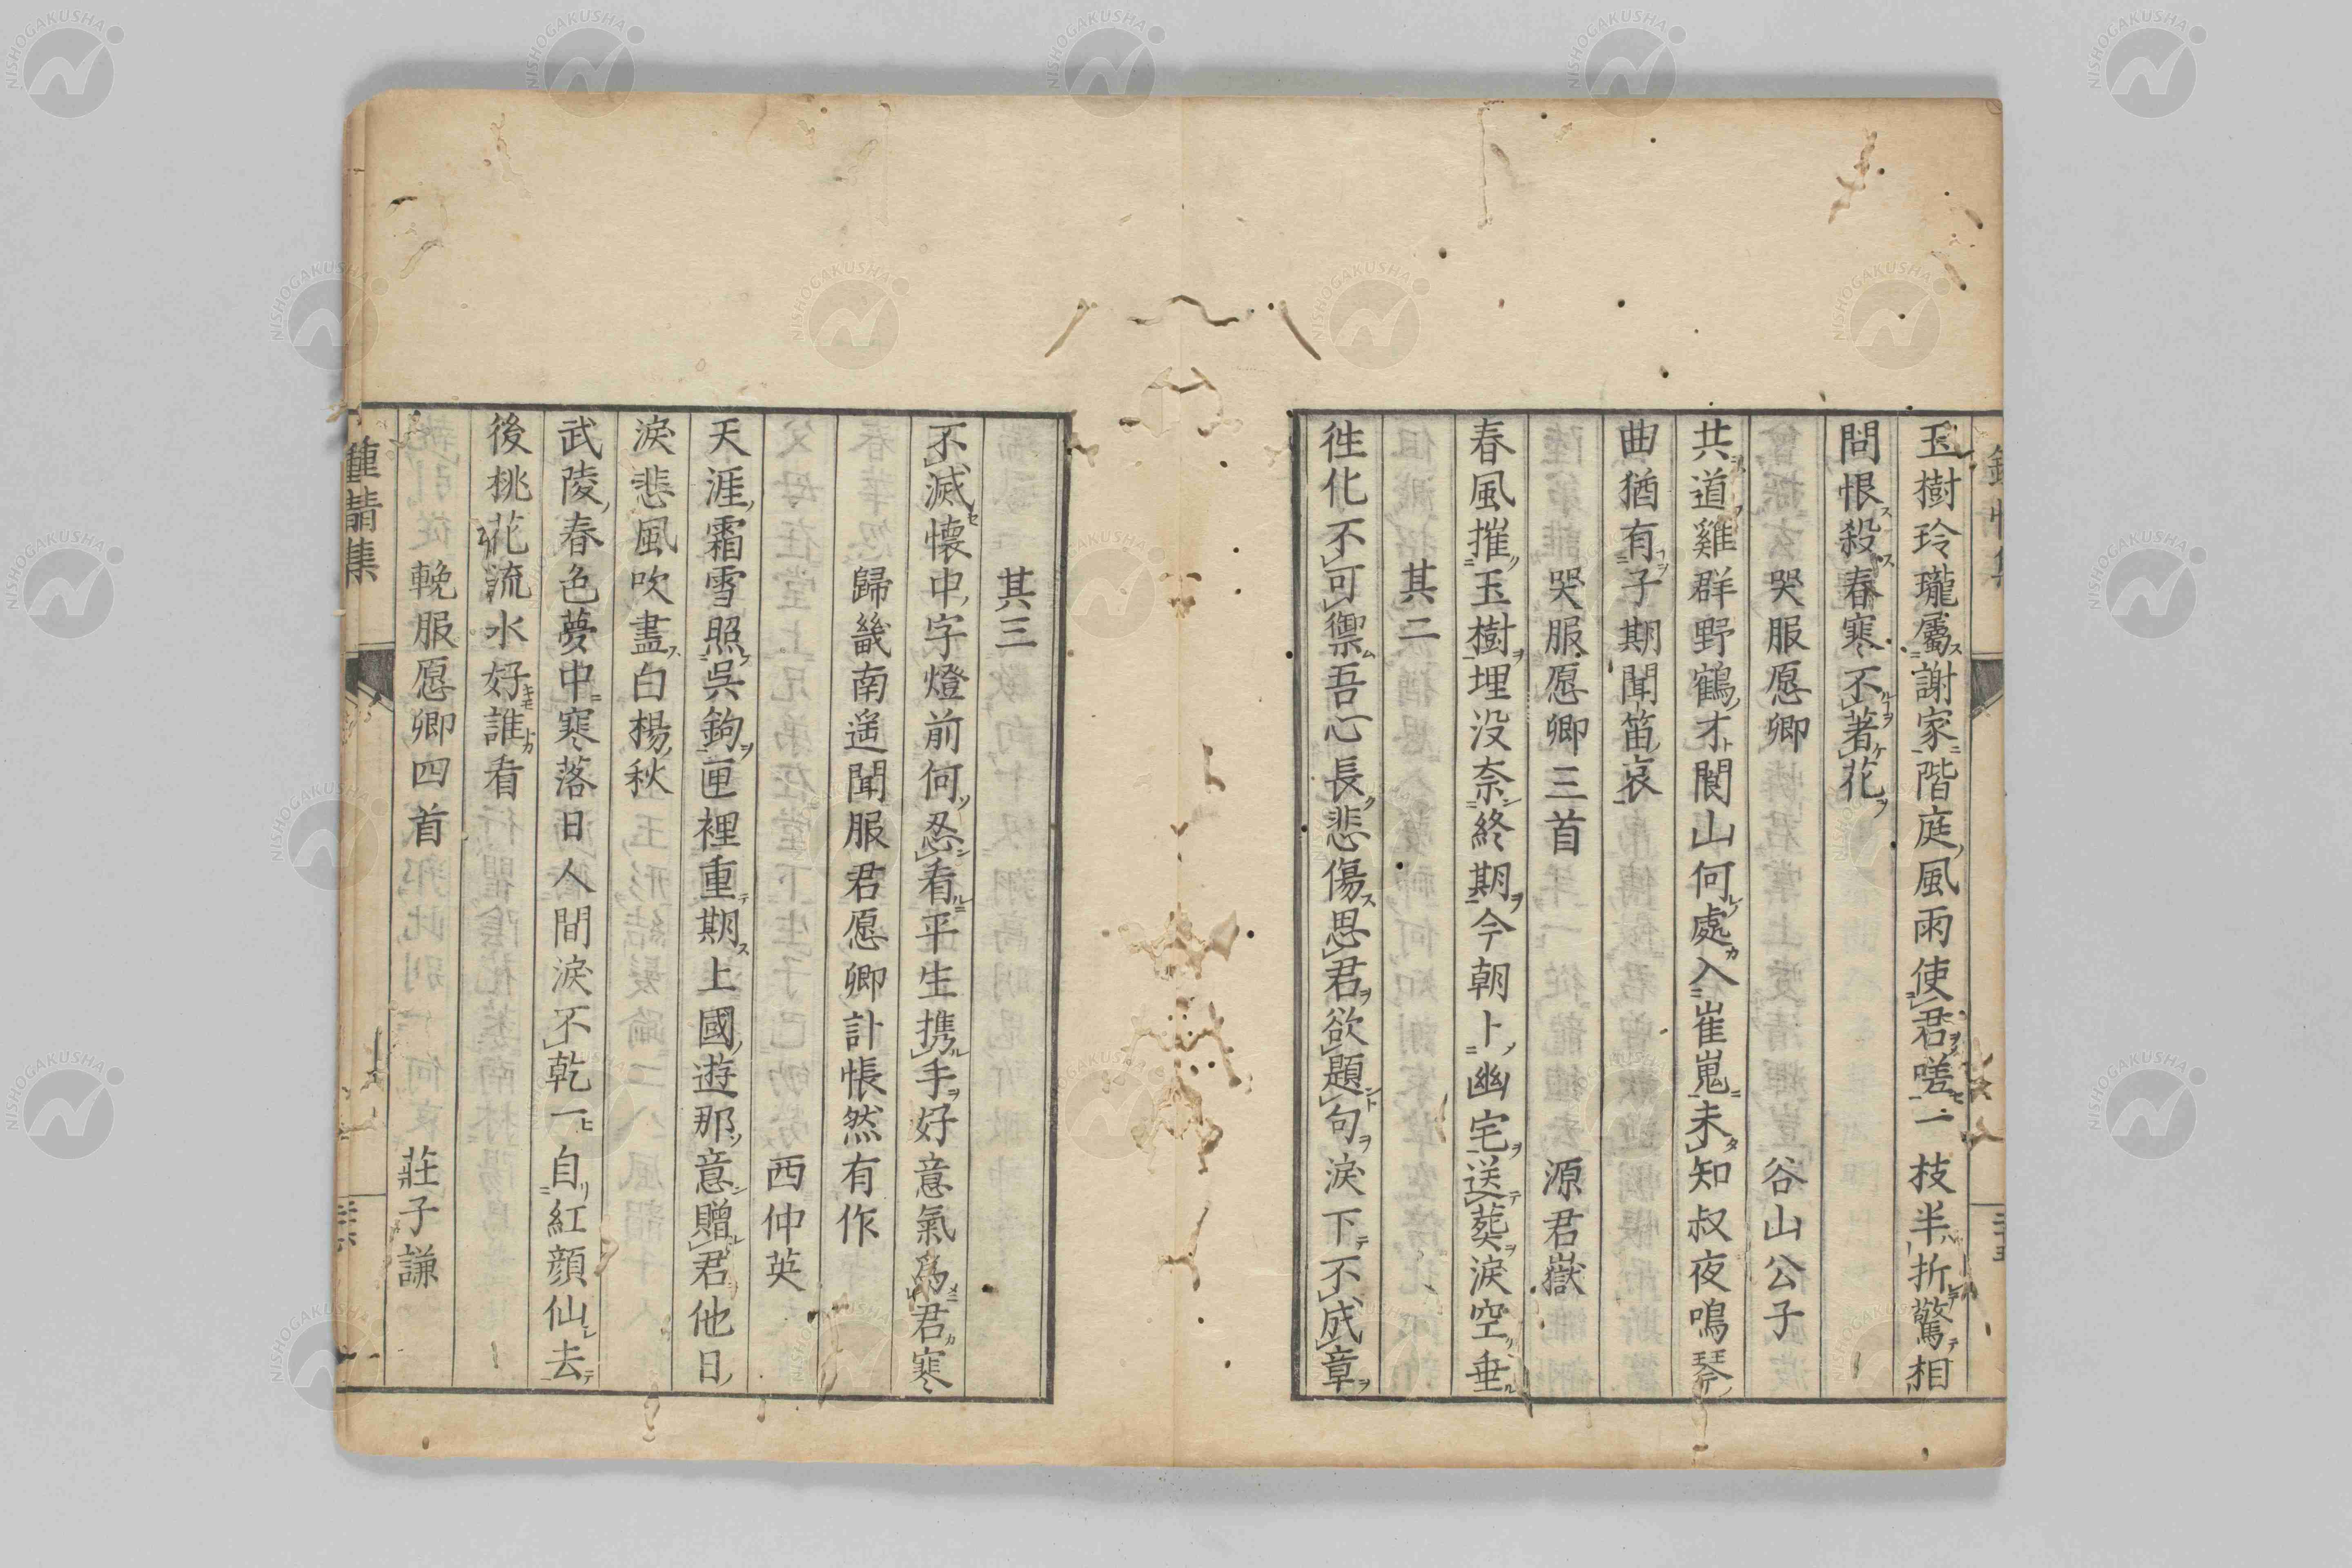 玉樹玲瓏屬謝家階庭風雨使君嗟一枝半折驚相
問恨殺春寒不著花
哭服愿卿 谷山公子
共道雞群野鶴才閬山何處入崔嵬未知叔夜鳴琴
曲猶有子期聞笛哀
哭服愿卿三首 源君嶽
春風摧玉樹埋没奈終期今朝卜幽宅送葬淚空垂
其二
徃化不可禦吾心長悲傷思君欲題句淚下不成章
其三
不滅懷中字燈前何忍看平生携手好意氣爲君寒
歸畿南遥聞服君愿卿計悵然有作
西仲英
天涯霜雪照吳鉤匣裡重期上國遊那意贈君他日
淚悲風吹盡白楊秋
武陵春色夢中寒落日人間淚不乾一自紅顔仙去
後桃花流水好誰看
輓服愿卿四首 莊子謙
鍾情集